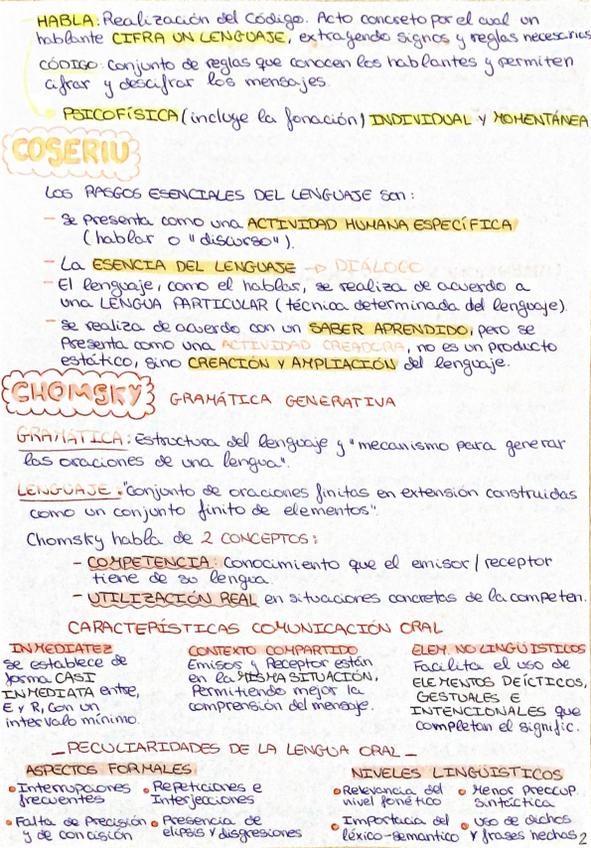 HABLA: Realización del Código. Acto concreto por el cual un
hablante CIFRA UN LENGUAJE, extrayendo signos y reglas necesarias
CÓDIGO: Conjunto de reglas que conocen los hablantes y permiten
cifrar y descifrar los mensajes.
PSICOFÍSICA (incluye la fonación) INDIVIDUAL Y MOMENTÁNEA
COSERIU
LOS RASGOS ESENCIALES DEL LENGUAJE son:
- Se presenta como una ACTIVIDAD HUMANA ESPECÍFICA
(hablar o "discurso").
- La ESENCIA DEL LENGUAJE → DIÁLOGO
- El lenguaje, como el hablar, se realiza de acuerdo a
una LENGUA PARTICULAR (técnica determinada del lenguaje).
- Se realiza de acuerdo con un SABER APRENDIDO, pero se
Presenta como una ACTIVIDAD CREADORA, no es un producto
estático, sino CREACIÓN Y AMPLIACIÓN del lenguaje.
CHOMSKY GRAMÁTICA GENERATIVA
GRAMÁTICA: Estructura del lenguaje y "mecanismo para generar
las oraciones de una lengua".
LENGUAJE: "Conjunto de oraciones finitas en extensión construidas
como un conjunto finito de elementos".
Chomsky habla de 2 CONCEPTOS:
- COMPETENCIA: Conocimiento que el emisor/receptor
tiene de su lengua.
- UTILIZACIÓN REAL en situaciones concretas de la competen.
CARACTERÍSTICAS COMUNICACIÓN ORAL
INMEDIATEZ
Se establece de
forma CASI
INMEDIATA entre,
E y R, con un
intervalo mínimo.
CONTEXTO COMPARTIDO
Emisor y Receptor están
en la MISMA SITUACIÓN,
Permitiendo mejor la
comprensión del mensaje.
ELEM. NO LINGÜISTICOS
Facilita el uso de
ELEMENTOS DEÍCTICOS,
GESTUALES E
INTENCIONALES que
completan el signific.
_PECULIARIDADES DE LA LENGUA ORAL_
ASPECTOS FORMALES
• Interrupciones
frecuentes
• Repeticiones e
Interjecciones
• Falta de Precisión
y de concisión
• Presencia de
elipsis y disgresiones
NIVELES LINGÜISTICOS
• Relevancia del
nivel fonético
• Menor Preocup.
Sintáctica
• Importacia del
léxico-semantico
• Uso de dichos
y frases hechas
2